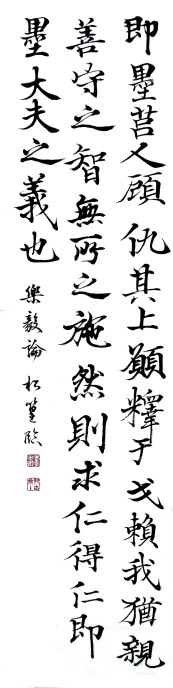 即墨莒人顧仇其上願釋干戈賴我猶親
善守之智無所之施然則求仁得仁即
墨大夫之義也
樂毅論 松篁臨